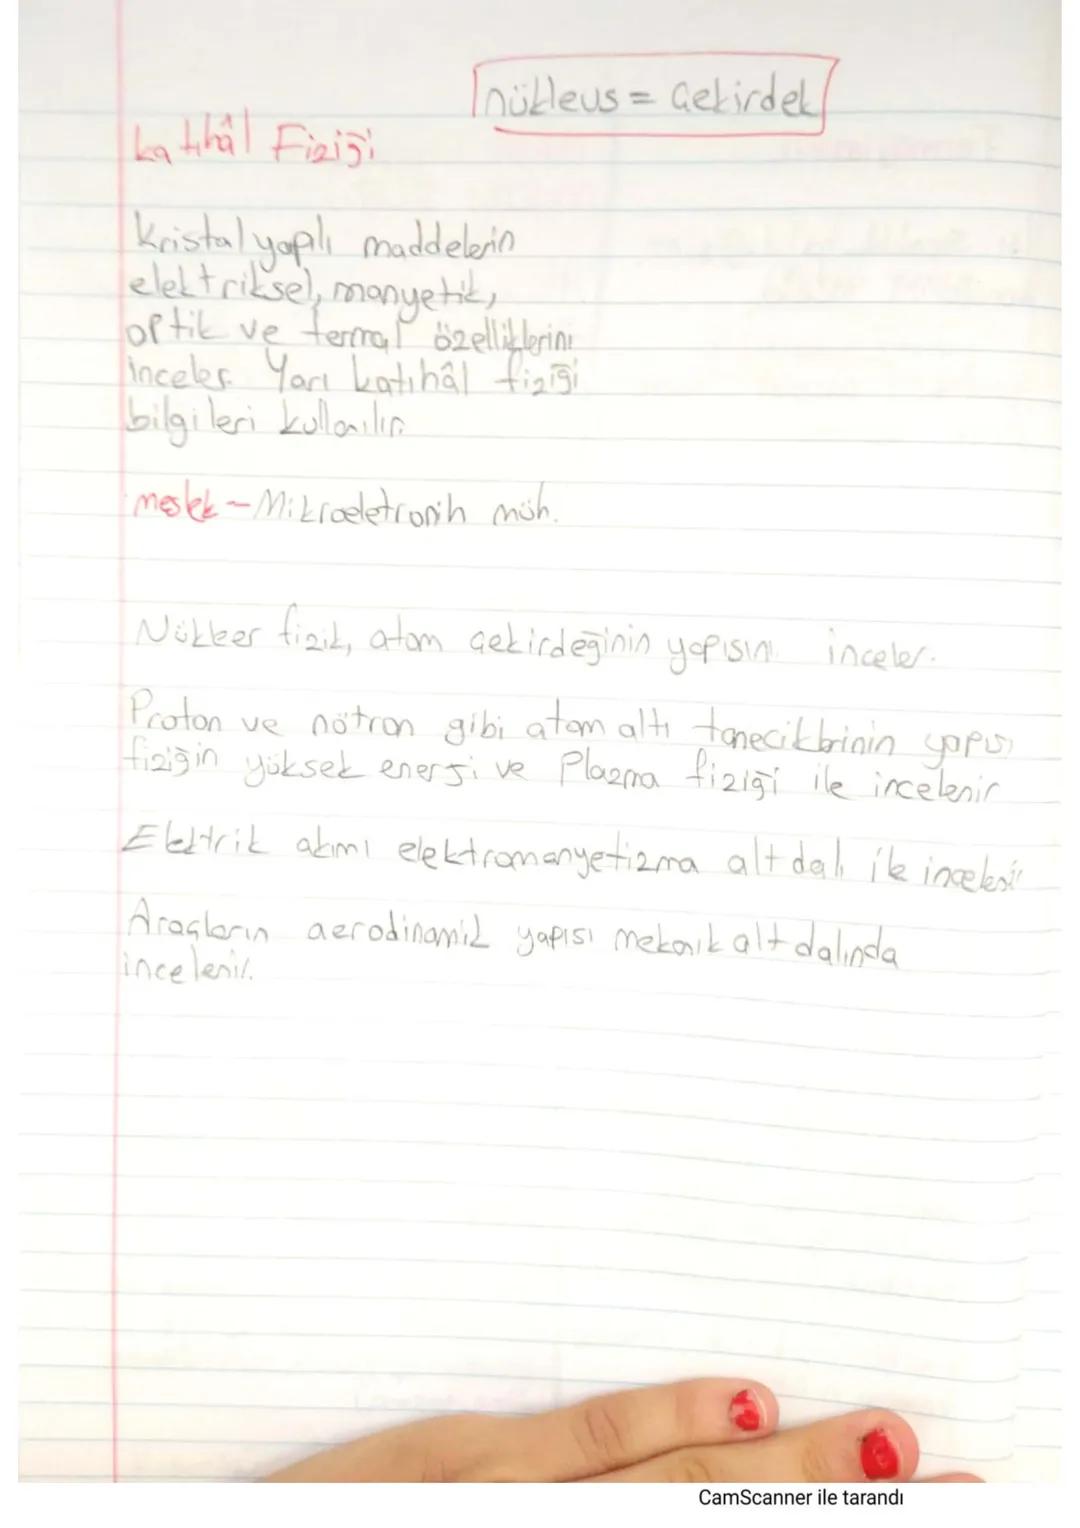 nükleus = Çekirdek
katıhâl Fiziği
Kristal yapılı maddelerin
elektriksel, manyetik,
optik ve termal özelliklerini
inceler. Yarı katıhâl fiziği
bilgileri kullanılır.
meslek - Mikroeletronik müh.
Nükleer fizik, atom çekirdeğinin yapısını inceler.
Proton ve nötron gibi atom altı taneciklerinin yapısı
fiziğin yüksek enerji ve Plazma fiziği ile incelenir
Elektrik akımı elektromanyetizma alt dalı ile incelenir
Araçların aerodinamik yapısı mekanik alt dalında
incelenir.
CamScanner ile tarandı